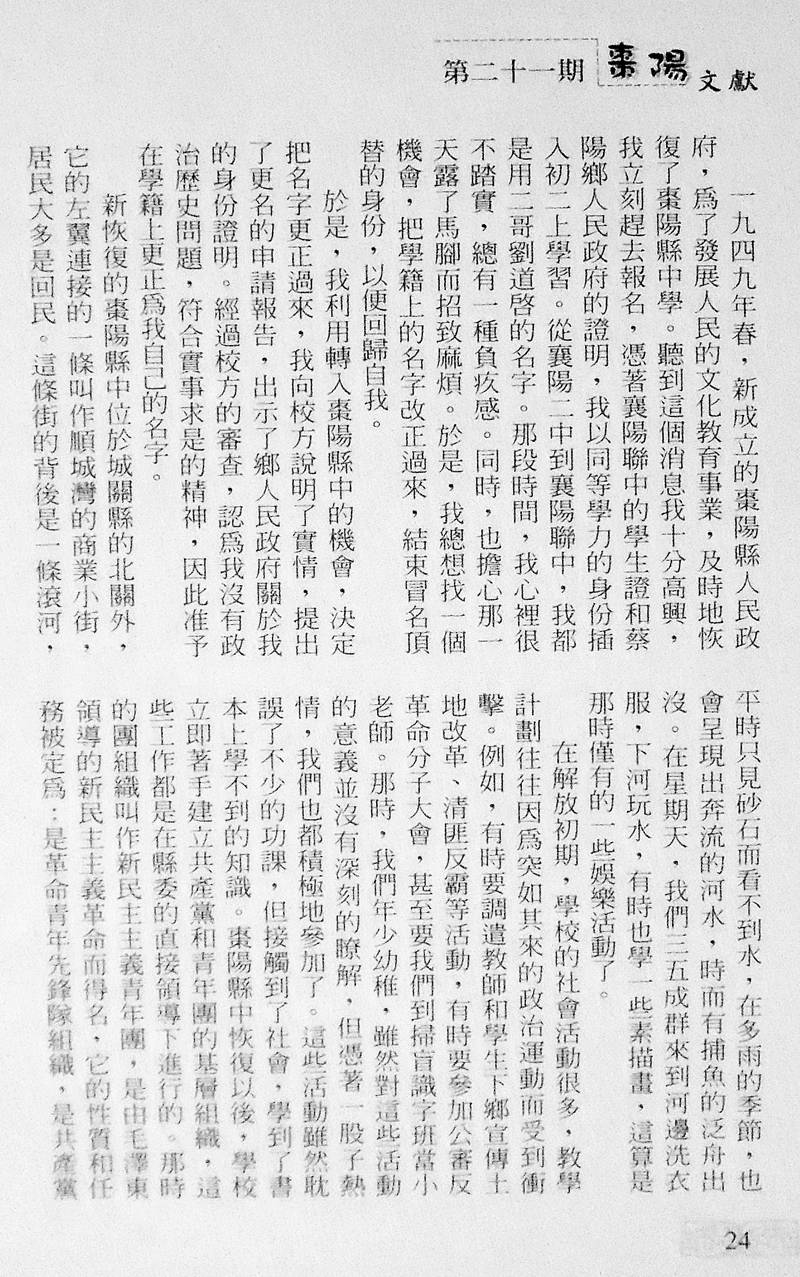 第二十一期 棗陽文獻
一九四九年春，新成立的棗陽縣人民政
府，爲了發展人民的文化教育事業，及時地恢
復了棗陽縣中學。聽到這個消息我十分高興，
我立刻趕去報名，憑著襄陽聯中的學生證和蔡
陽鄉人民政府的證明，我以同等學力的身份插
入初二上學習。從襄陽二中到襄陽聯中，我都
是用二哥劉道啓的名字。那段時間，我心裡很
不踏實，總有一種負疚感。同時，也擔心那一
天露了馬腳而招致麻煩。於是，我總想找一個
機會，把學籍上的名字改正過來，結束冒名頂
替的身份，以便回歸自我。
於是，我利用轉入棗陽縣中的機會，決定
把名字更正過來，我向校方說明了實情，提出
了更名的申請報告，出示了鄉人民政府關於我
的身份證明。經過校方的審查，認爲我沒有政
治歷史問題，符合實事求是的精神，因此准予
在學籍上更正爲我自己的名字。
新恢復的棗陽縣中位於城關縣的北關外，
它的左翼連接的一條叫作順城灣的商業小街，
居民大多是回民。這條街的背後是一條滾河，
平時只見砂石而看不到水，在多雨的季節，也
會呈現出奔流的河水，時而有捕魚的泛舟出
沒。在星期天，我們三五成群來到河邊洗衣
服，下河玩水，有時也學一些素描畫，這算是
那時僅有的一些娛樂活動了。
在解放初期，學校的社會活動很多，教學
計劃往往因爲突如其來的政治運動而受到衝
擊。例如，有時要調遣教師和學生下鄉宣傳土
地改革、清匪反霸等活動，有時要參加公審反
革命分子大會，甚至要我們到掃盲識字班當小
老師。那時，我們年少幼稚，雖然對這些活動
的意義並沒有深刻的瞭解，但憑著一股子熱
情，我們也都積極地參加了。這些活動雖然耽
誤了不少的功課，但接觸到了社會，學到了書
本上學不到的知識。棗陽縣中恢復以後，學校
立即著手建立共產黨和青年團的基層組織，這
些工作都是在縣委的直接領導下進行的。那時
的團組織叫作新民主主義青年團，是由毛澤東
領導的新民主主義革命而得名，它的性質和任
務被定爲：是革命青年先鋒隊組織，是共產黨
24